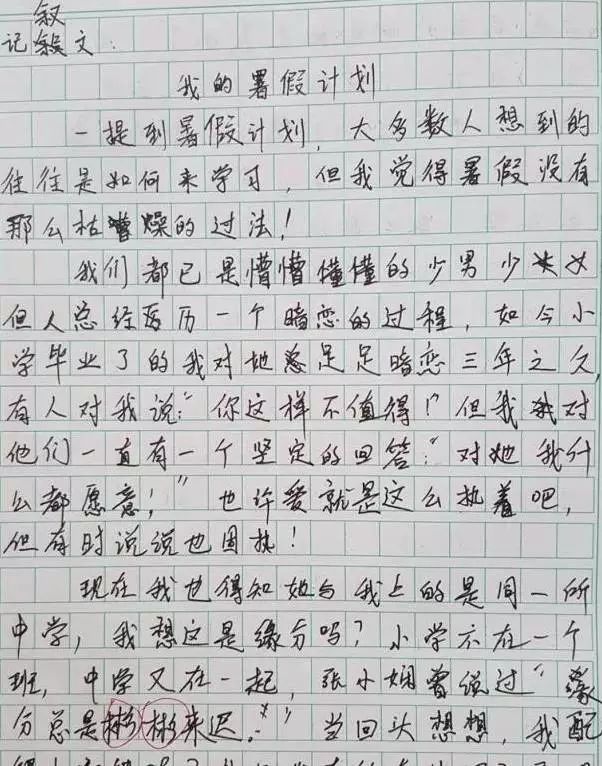 叙
记叙文：
我的暑假计划
一提到暑假计划，大多数人想到的
往往是如何来学习，但我觉得暑假没有
那么枯燥的过法！
我们都已是懵懵懂懂的少男少女
但人总经历一个暗恋的过程，如今小
学毕业了的我对她足足暗恋三年之久，
有人对我说："你这样不值得！"但我对
他们一直有一个坚定的回答："对她我什
么都愿意！"也许爱就是这么执着吧，
但有时说说也固执！
现在我也得知她与我上的是同一所
中学，我想这是缘分吗？小学不在一个
班，中学又在一起，张小娴曾说过"缘
分总是彬彬来迟。"当回头想想，我配